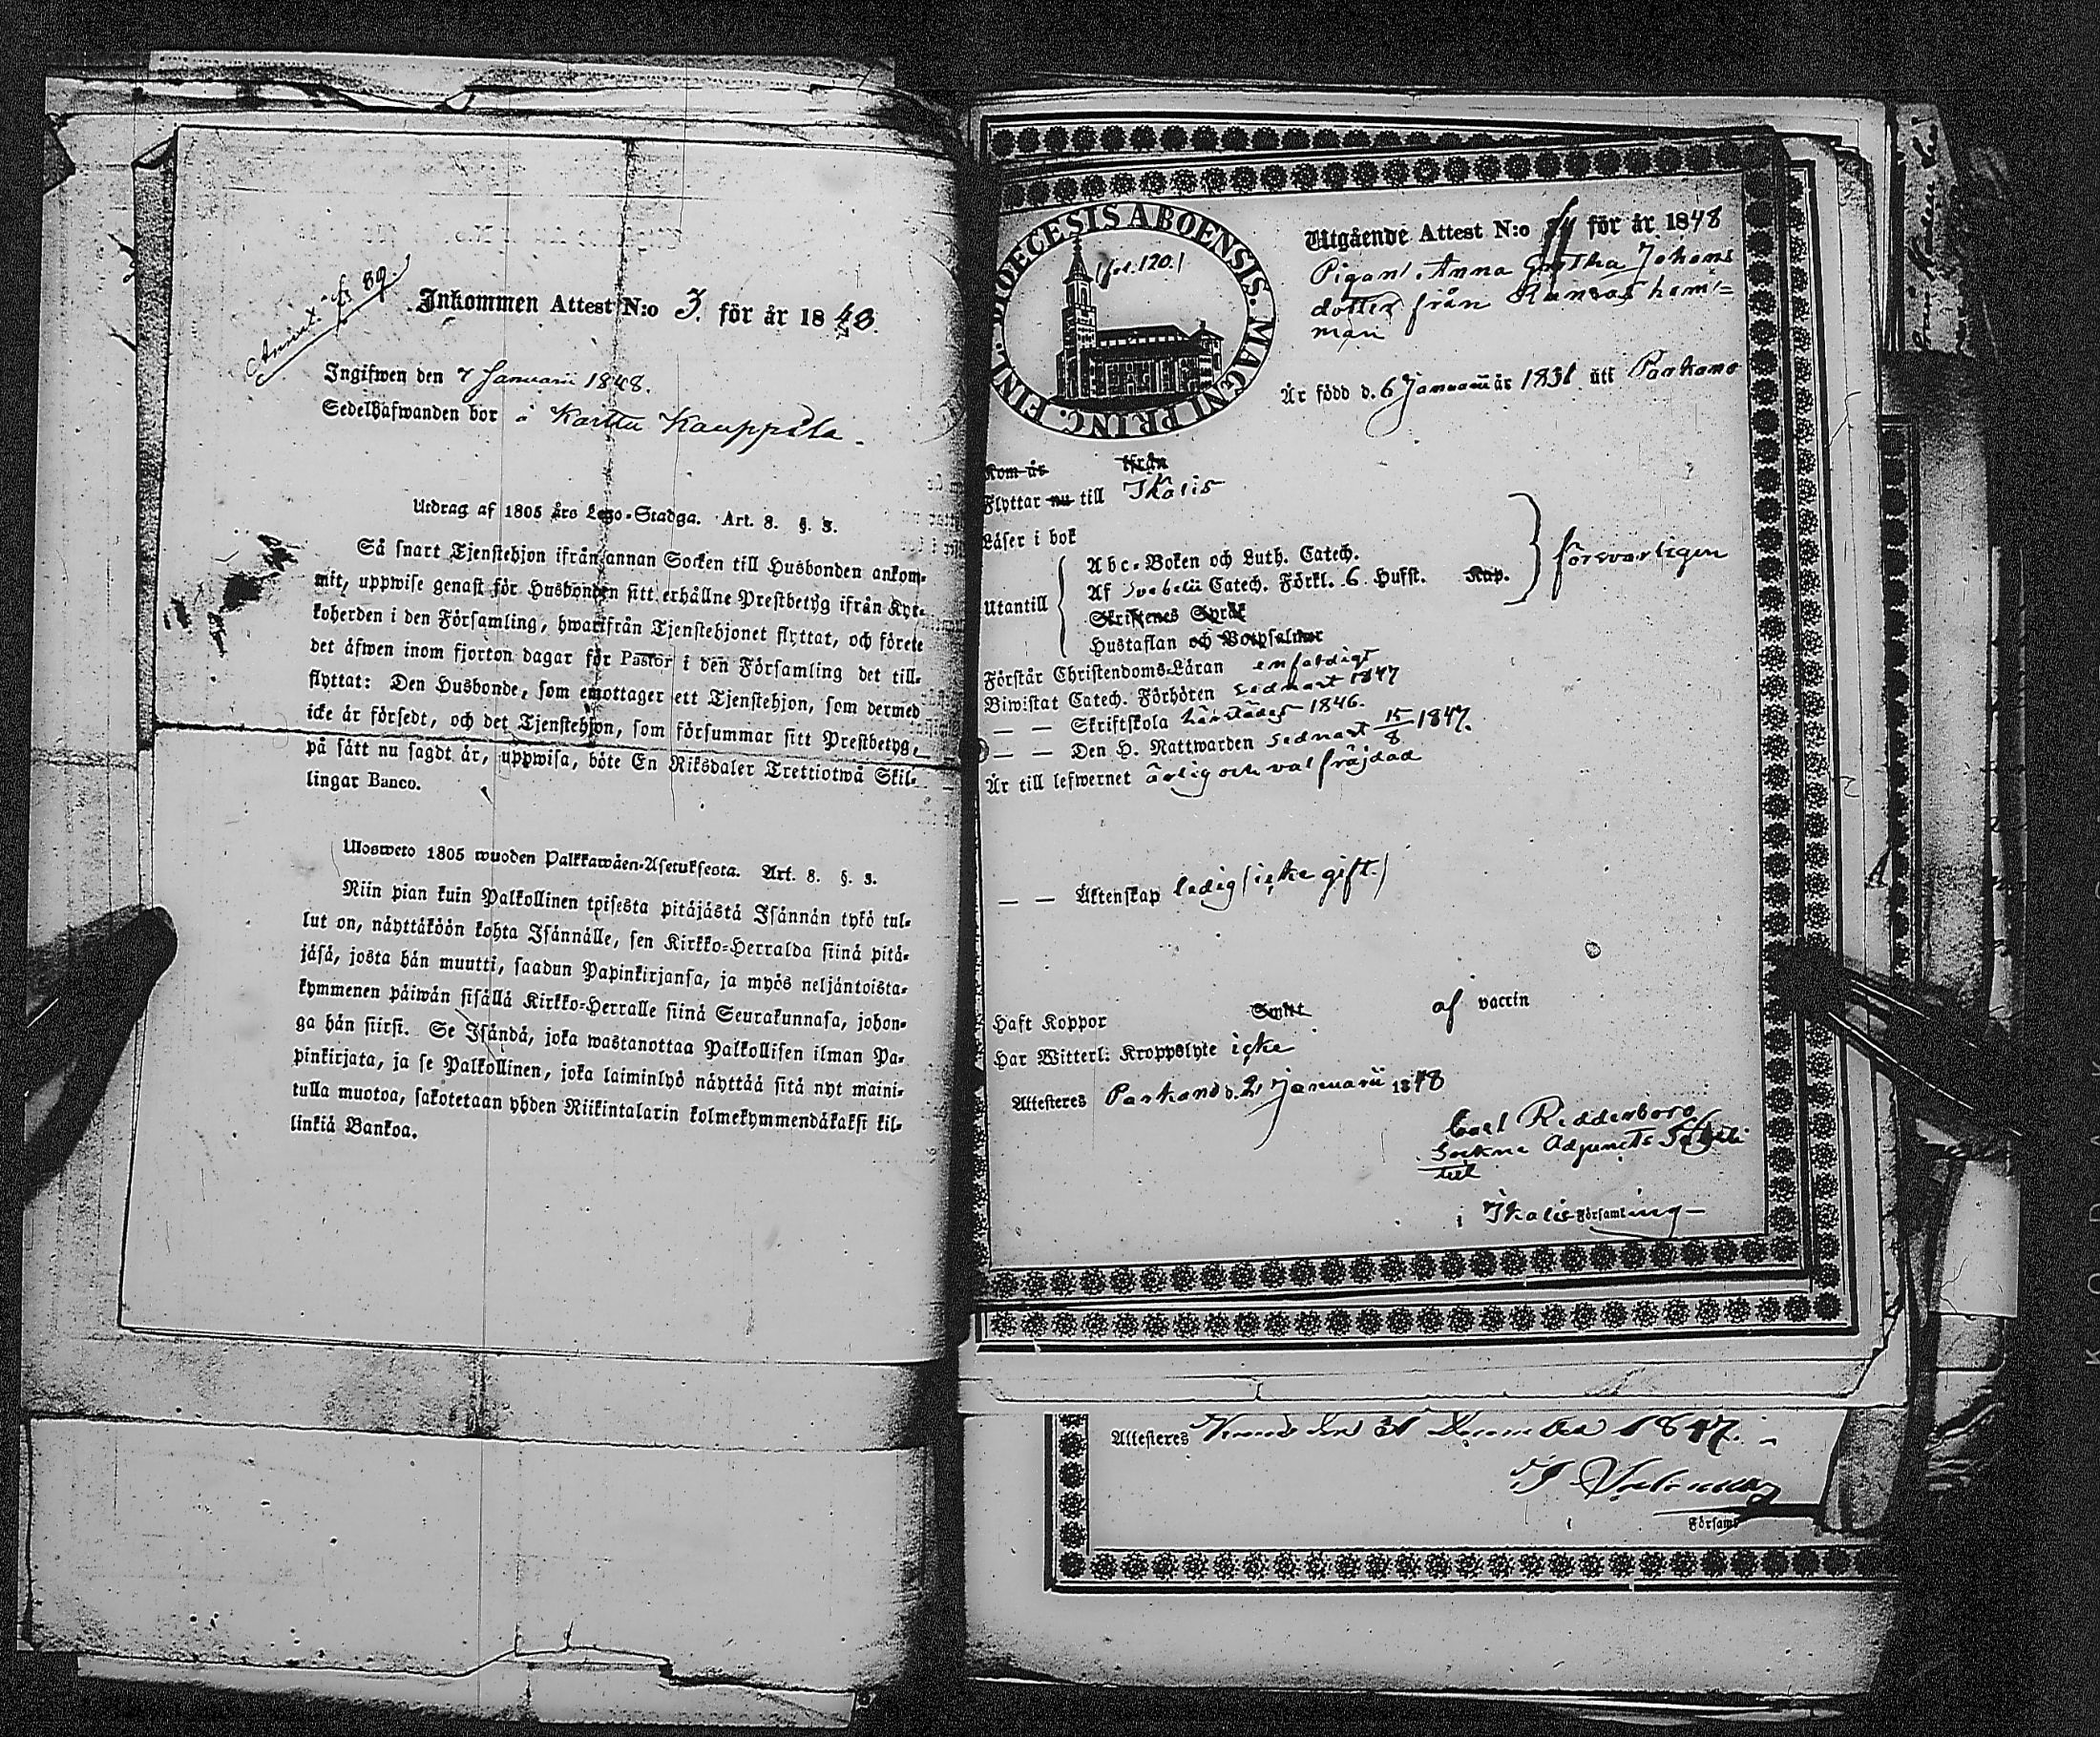 Inkommen Attest N:o 3. för år 1848.
Ingifwen den 7 Januarii 1848.
Sedelhafwanden bor å Karttu Kauppila.
Utdrag af 1805 års Lego-Stadga. Art. 8. §. 3.
Så snart Tjenstehjon ifrån annan Socken till Husbonden ankom-
mit, uppwise genast för Husbonden sitt erhållne Prestbetyg ifrån Kyr-
koherden i den Församling, hwarifrån Tjenstehjonet flyttat, och förete
det äfwen inom fjorton dagar för Pastor i den Församling det till-
flyttat: Den Husbonde, som emottager ett Tjenstehjon, som dermed
icke är försedt, och det Tjenstehjon, som försummar sitt Prestbetyg,
på sätt nu sagdt är, uppwisa, böte En Riksdaler Trettiotwå Skil-
lingar Banco.
Ulosweto 1805 wuoden Palkkawäen-Asetuksesta. Art. 8. §. 3.
Niin pian kuin Palkollinen toisesta pitäjästä Isännän tykö tul-
lut on, näyttäköön kohta Isännälle, sen Kirkko-Herralda siinä pitä-
jäsä, josta hän muutti, saadun Papinkirjansa, ja myös neljäntoista-
kymmenen päiwän sisällä Kirkko-Herralle siinä Seurakunnasa, johon-
ga hän siirsi. Se Isändä, joka wastanottaa Palkollisen ilman Pa-
pinkirjata, ja se Palkollinen, joka laiminlyö näyttää sitä nyt maini-
tulla muotoa, sakotetaan yhden Riikintalarin kolmekymmendäkaksi kil-
linkiä Bankoa.
FINL. DIOECESIS ABOENSIS. MAGNI PRINC.
(fol. 120.)
Utgående Attest N:o för år 1848
Pigan Anna Johans
dotter från hem=
man
Är född d. 6 Januarii år 1831 uti Parkano
Kom år ifrån
Flyttar nu till Ikalis
Läser i bok
Utantill
Abc-Boken och Luth. Catech.
Af Svebelii Catech. Förkl. 6. Hufst. Kap.
Skriftenes Språk
Hustaflan och Botpsalmer
försvarligen
Förstår Christendoms-Läran enfaldigt
Biwistat Catech. Förhören sednast 1847
— — Skriftskola härstädes 1846.
— — Den H. Nattwarden sednast 15/8 1847.
Är till lefwernet ärlig och väl fräjdad
— — Äktenskap ledig (icke gift.)
Haft Koppor Smitt af vaccin
Har Witterl: Kroppslyte icke
Attesteres Parkano d. 2 Januarii 1848
Carl Ridderborg
Sockne Adjuncts
i Ikalis Församling
Attesteres den 31 December 1847.
Församl